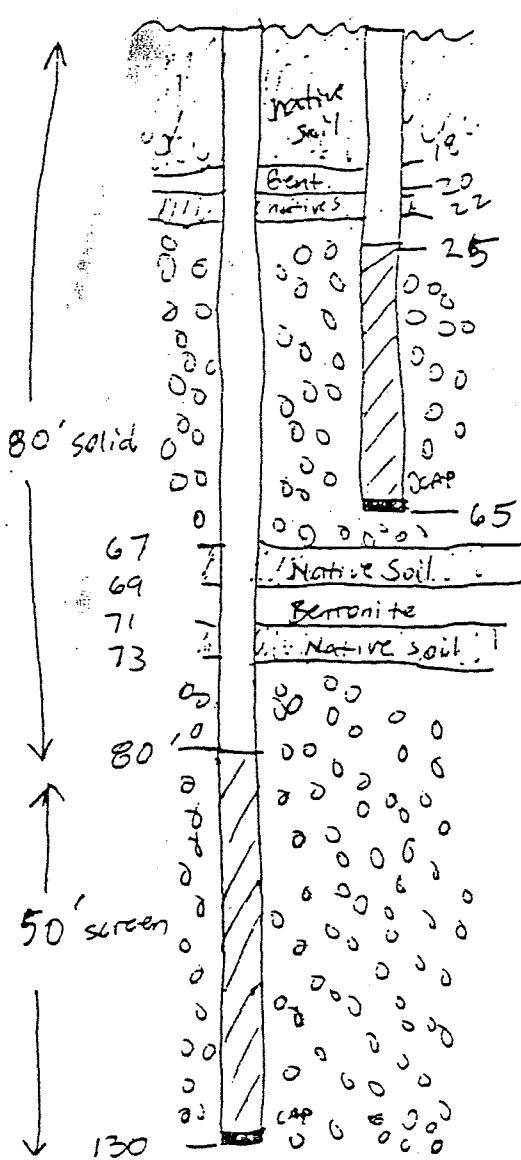 Native
soil
18
Bent.
20
Native S
22
25
80' solid
CAP
65
67
Native Soil
69
Bentonite
71
Native soil
73
80'
50' screen
CAP
130